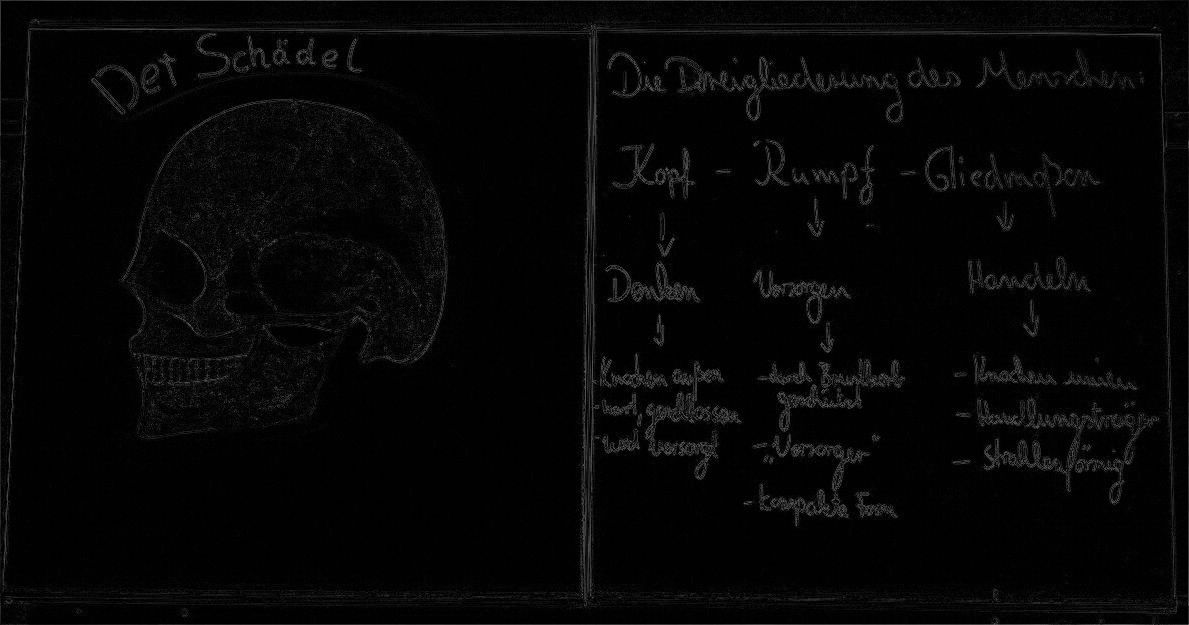 Der Schädel
Die Dreigliederung des Menschen:
Kopf - Rumpf - Gliedmaßen
↓ ↓ ↓
Denken Versorgen Handeln
↓ ↓ ↓
Knochen außen
- hart, geschlossen
- wird versorgt
- durch Brustkorb
geschützt
- „Versorger"
- kompakte Form
- Knochen innen
- Handlungsträger
- Strahlenförmig